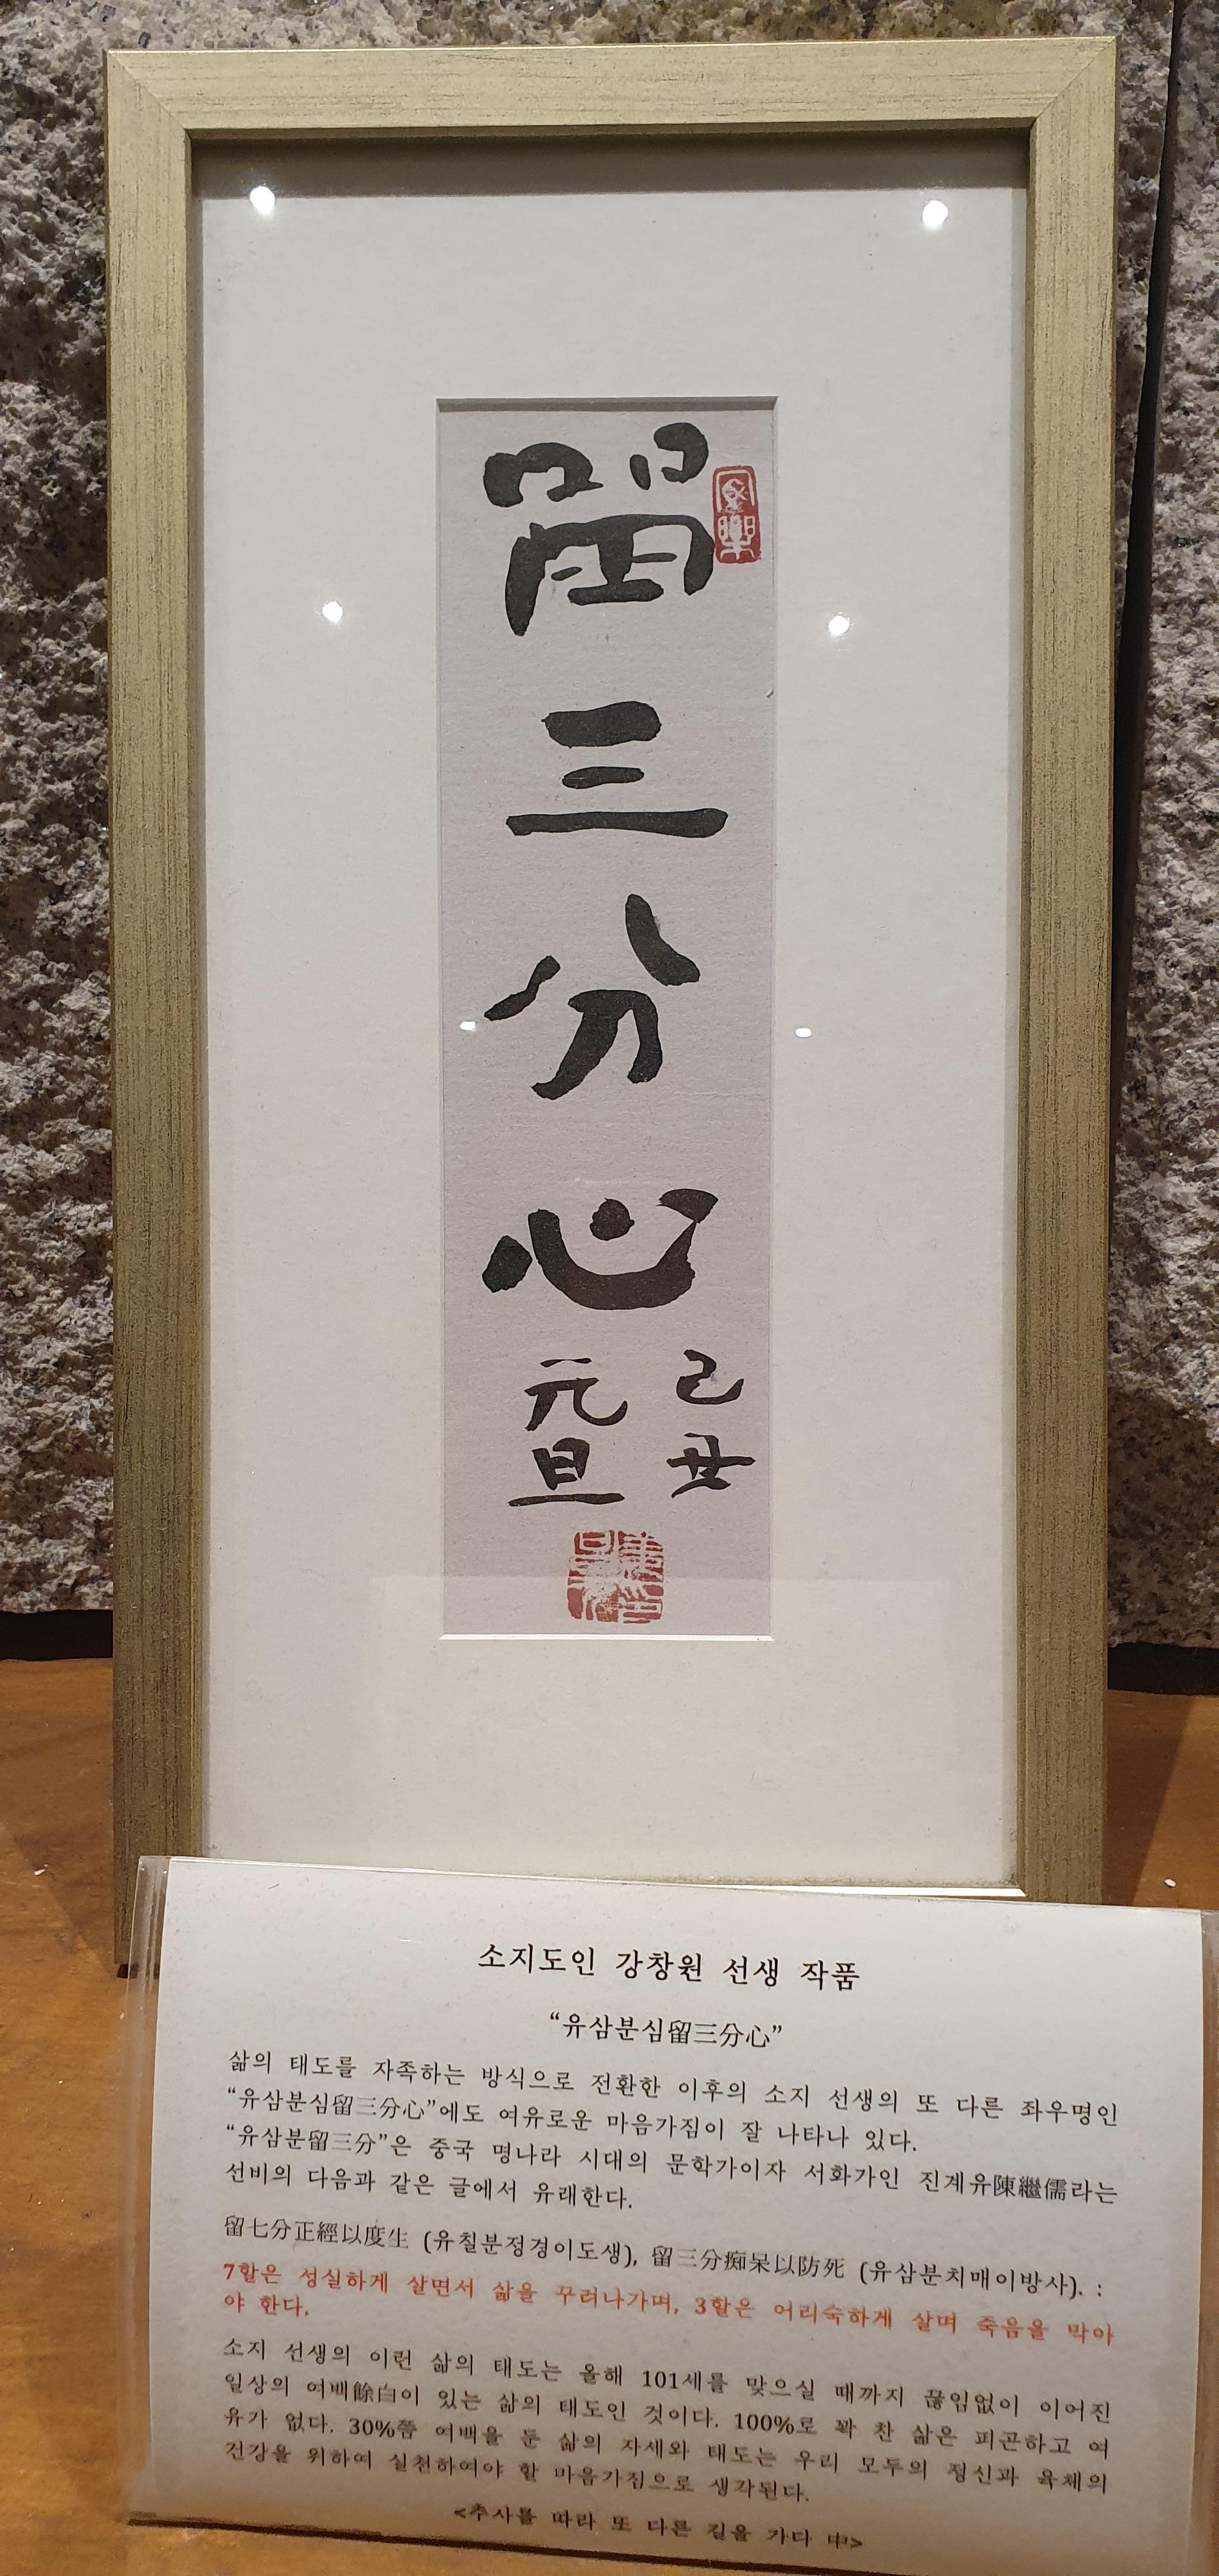 留
三
分
心
己丑
元旦
소지도인 강창원 선생 작품
“유삼분심留三分心”
삶의 태도를 자족하는 방식으로 전환한 이후의 소지 선생의 또 다른 좌우명인
“유삼분심留三分心”에도 여유로운 마음가짐이 잘 나타나 있다.
“유삼분留三分”은 중국 명나라 시대의 문학가이자 서화가인 진계유陳繼儒라는
선비의 다음과 같은 글에서 유래한다.
留七分正經以度生 (유칠분정경이도생), 留三分痴呆以防死 (유삼분치매이방사). :
7할은 성실하게 살면서 삶을 꾸려나가며, 3할은 어리숙하게 살며 죽음을 막아
야 한다.
소지 선생의 이런 삶의 태도는 올해 101세를 맞으실 때까지 끊임없이 이어진
일상의 여백餘白이 있는 삶의 태도인 것이다. 100%로 꽉 찬 삶은 피곤하고 여
유가 없다. 30%쯤 여백을 둔 삶의 자세와 태도는 우리 모두의 정신과 육체의
건강을 위하여 실천하여야 할 마음가짐으로 생각된다.
<추사를 따라 또 다른 길을 가다 中>